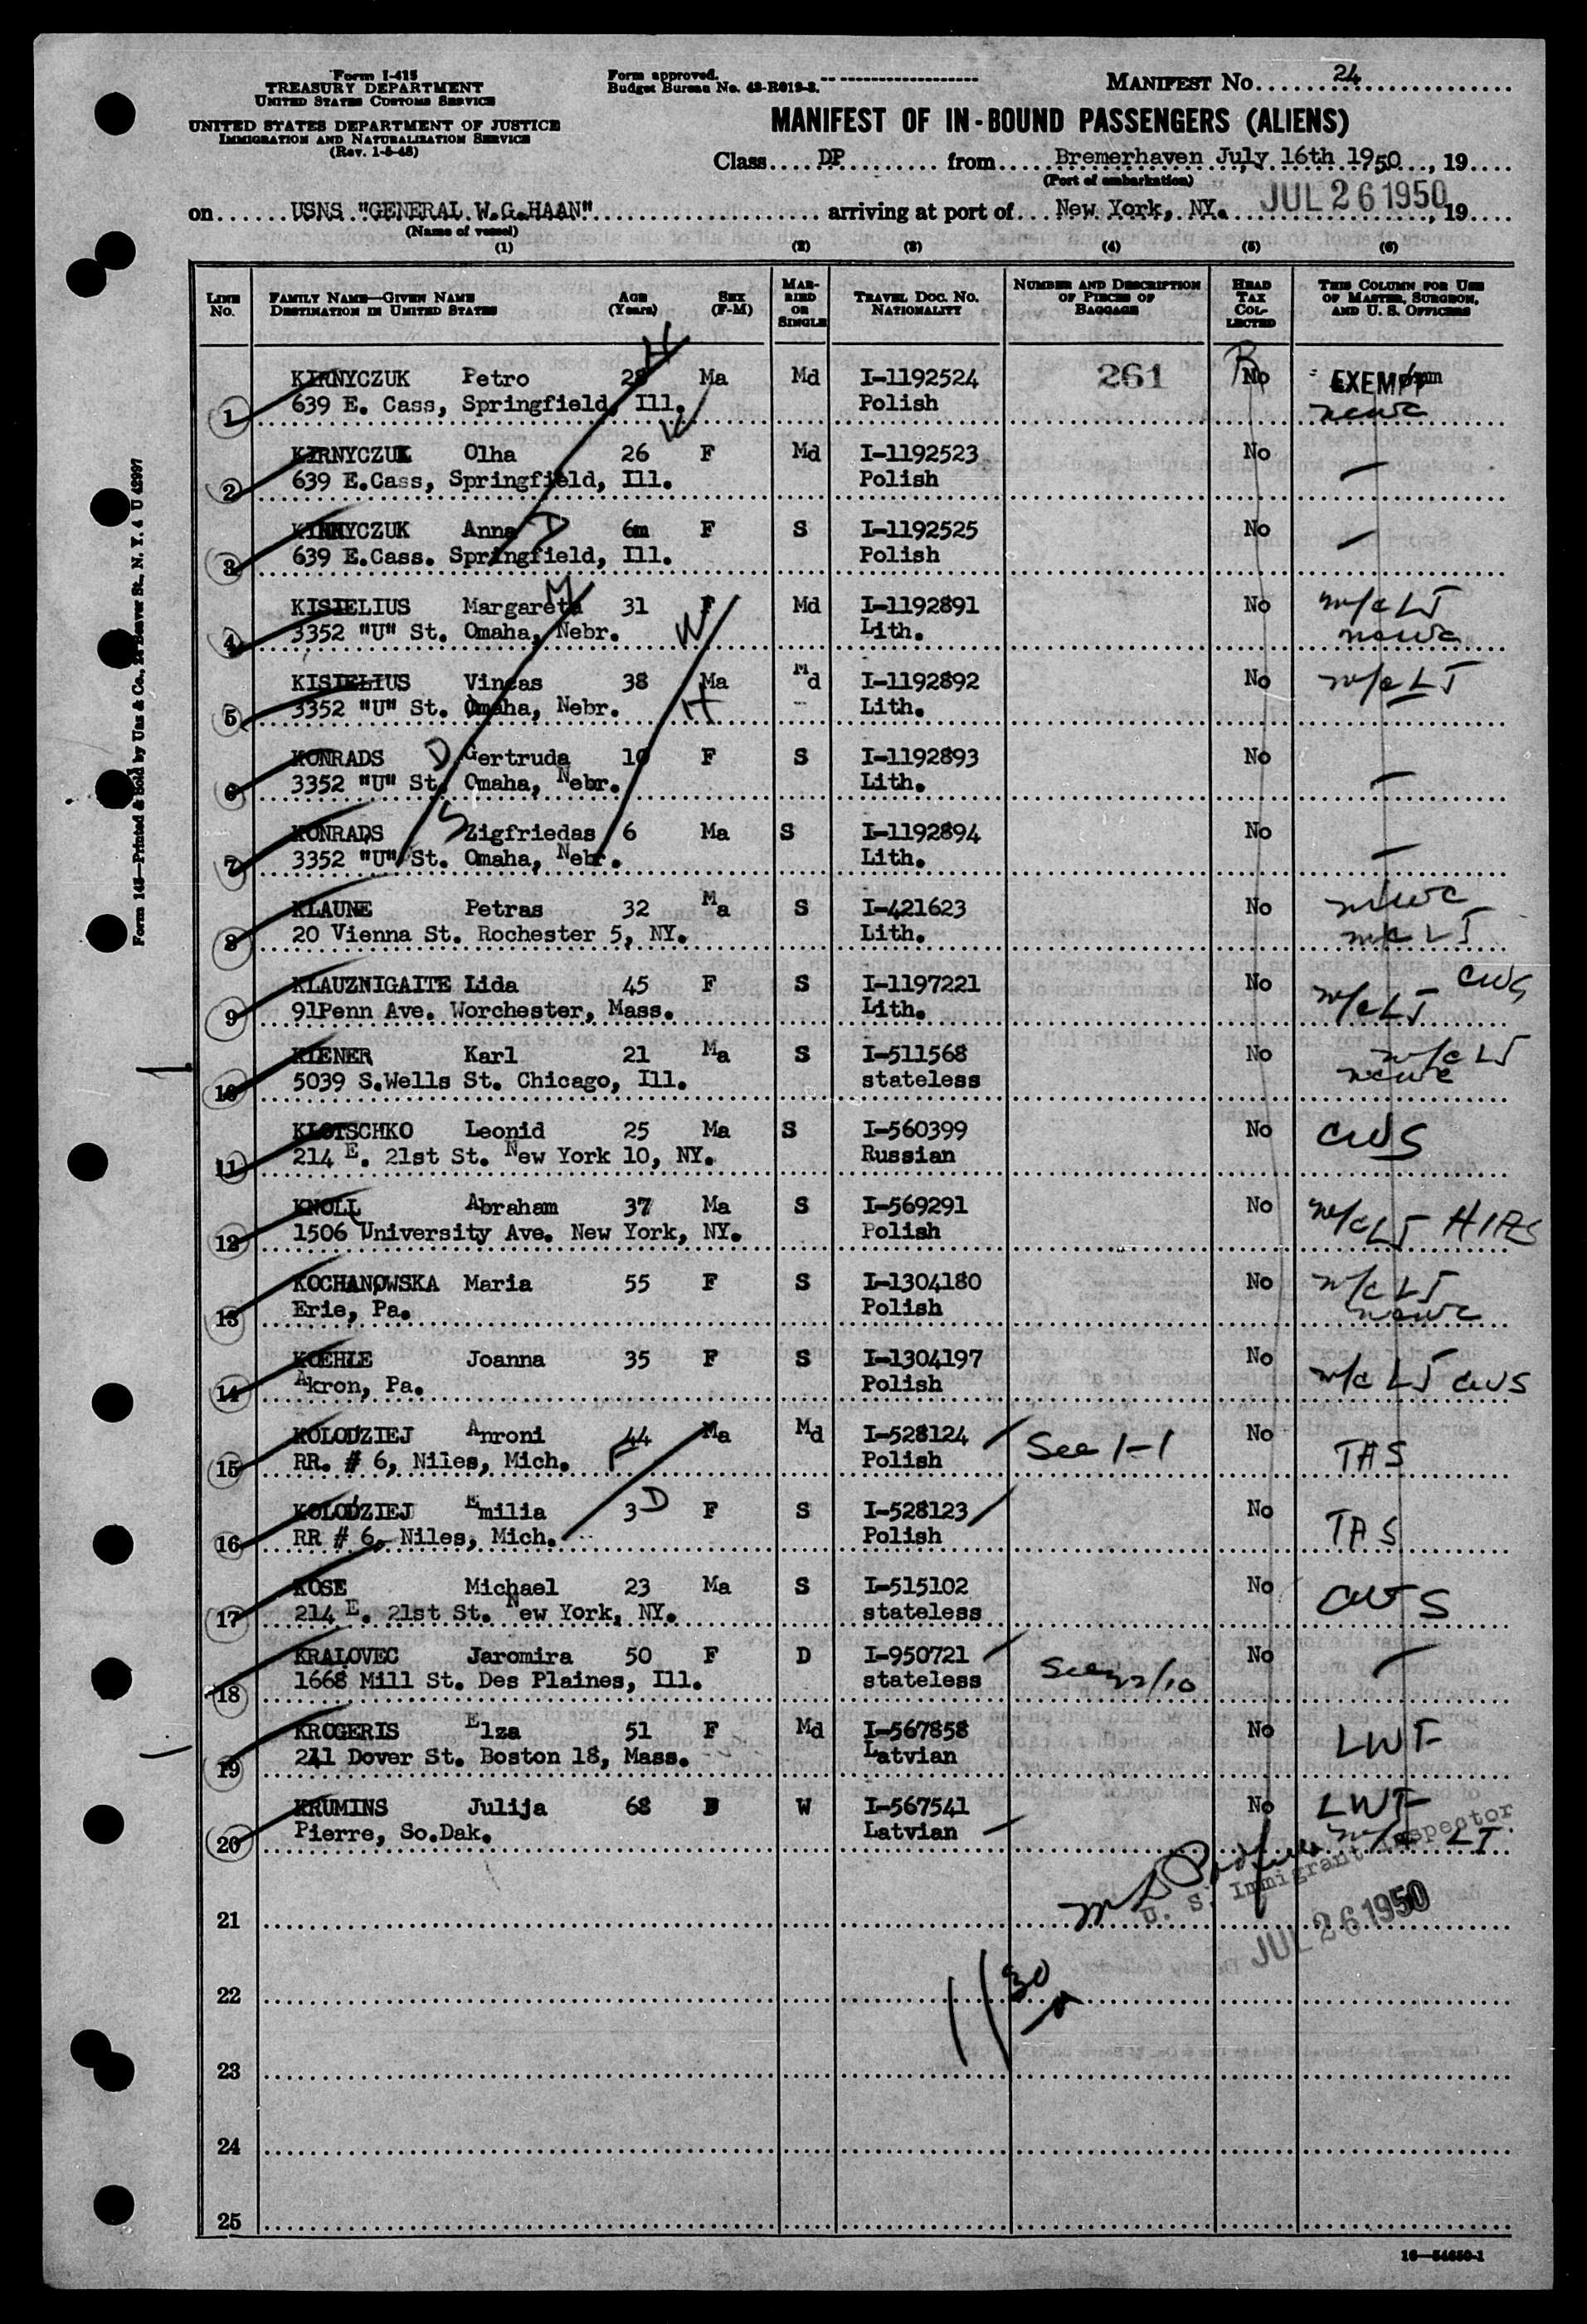 Form I-415
TREASURY DEPARTMENT
UNITED STATES CUSTOMS SERVICE
UNITED STATES DEPARTMENT OF JUSTICE
IMMIGRATION AND NATURALIZATION SERVICE
(Rev. 1-5-48)
Form approved.
Budget Bureau No. 43-R019-3.
MANIFEST No. 24
MANIFEST OF IN-BOUND PASSENGERS (ALIENS)
Class DP from Bremerhaven July 16th 1950, 19
(Port of embarkation)
on USNS "GENERAL W.G.HAAN" arriving at port of New York, NY. JUL 26 1950, 19
(Name of vessel)
(1) (2) (3) (4) (5) (6)
LINE No. FAMILY NAME—GIVEN NAME DESTINATION IN UNITED STATES AGE (Years) SEX (F-M) MARRIED OR SINGLE TRAVEL DOC. NO. NATIONALITY NUMBER AND DESCRIPTION OF PIECES OF BAGGAGE HEAD TAX COLLECTED THIS COLUMN FOR USE OF MASTER, SURGEON, AND U. S. OFFICERS
KIRNYCZUK Petro 28 H Ma Md I-1192524 261 No EXEMPT
1 639 E. Cass, Springfield, Ill. W Polish ncwc
KIRNYCZUK Olha 26 F Md I-1192523 No —
2 639 E.Cass, Springfield, Ill. Polish
KIRNYCZUK Anna D 6m F S I-1192525 No —
3 639 E.Cass. Springfield, Ill. Polish
KISIELIUS Margareta M 31 F Md I-1192891 No m/c LT
4 3352 "U" St. Omaha, Nebr. W Lith. ncwc
KISIELIUS Vincas 38 Ma Md I-1192892 No m/c LT
5 3352 "U" St. Omaha, Nebr. H Lith.
KONRADS D Gertruda 10 F S I-1192893 No —
6 3352 "U" St. Omaha, Nebr. Lith.
KONRADS S Zigfriedas 6 Ma S I-1192894 No —
7 3352 "U" St. Omaha, Nebr. Lith.
KLAUNE Petras 32 Ma S I-421623 No ncwc
8 20 Vienna St. Rochester 5, NY. Lith. m/c LT
KLAUZNIGAITE Lida 45 F S I-1197221 No CWS
9 91Penn Ave. Worchester, Mass. Lith. m/c LT
KIENER Karl 21 Ma S I-511568 No m/c LT
10 5039 S.Wells St. Chicago, Ill. stateless ncwc
KLOTSCHKO Leonid 25 Ma S I-560399 No CWS
11 214 E. 21st St. New York 10, NY. Russian
KNOLL Abraham 37 Ma S I-569291 No m/c LT HIAS
12 1506 University Ave. New York, NY. Polish
KOCHANOWSKA Maria 55 F S I-1304180 No m/c LT
13 Erie, Pa. Polish ncwc
KOEHLE Joanna 35 F S I-1304197 No m/c LT CWS
14 Akron, Pa. Polish
KOLODZIEJ Anroni 44 Ma Md I-528124 See 1-1 No TAS
15 RR. # 6, Niles, Mich. F Polish
KOLODZIEJ Emilia 3 D F S I-528123 No TAS
16 RR # 6, Niles, Mich. Polish
KOSE Michael 23 Ma S I-515102 No CWS
17 214 E. 21st St. New York, NY. stateless
KRALOVEC Jaromira 50 F D I-950721 See 22/10 No —
18 1668 Mill St. Des Plaines, Ill. stateless
KROGERIS Elza 51 F Md I-567858 No LWF
19 241 Dover St. Boston 18, Mass. Latvian
KRUMINS Julija 68 W I-567541 No LWF
20 Pierre, So.Dak. Latvian m/c LT
U. S. Immigrant Inspector
JUL 26 1950
21
22
1130
23
24
25
16—54650-1
Form 145—Printed & Sold by Unz & Co., 24 Beaver St., N. Y. 4 U 42997